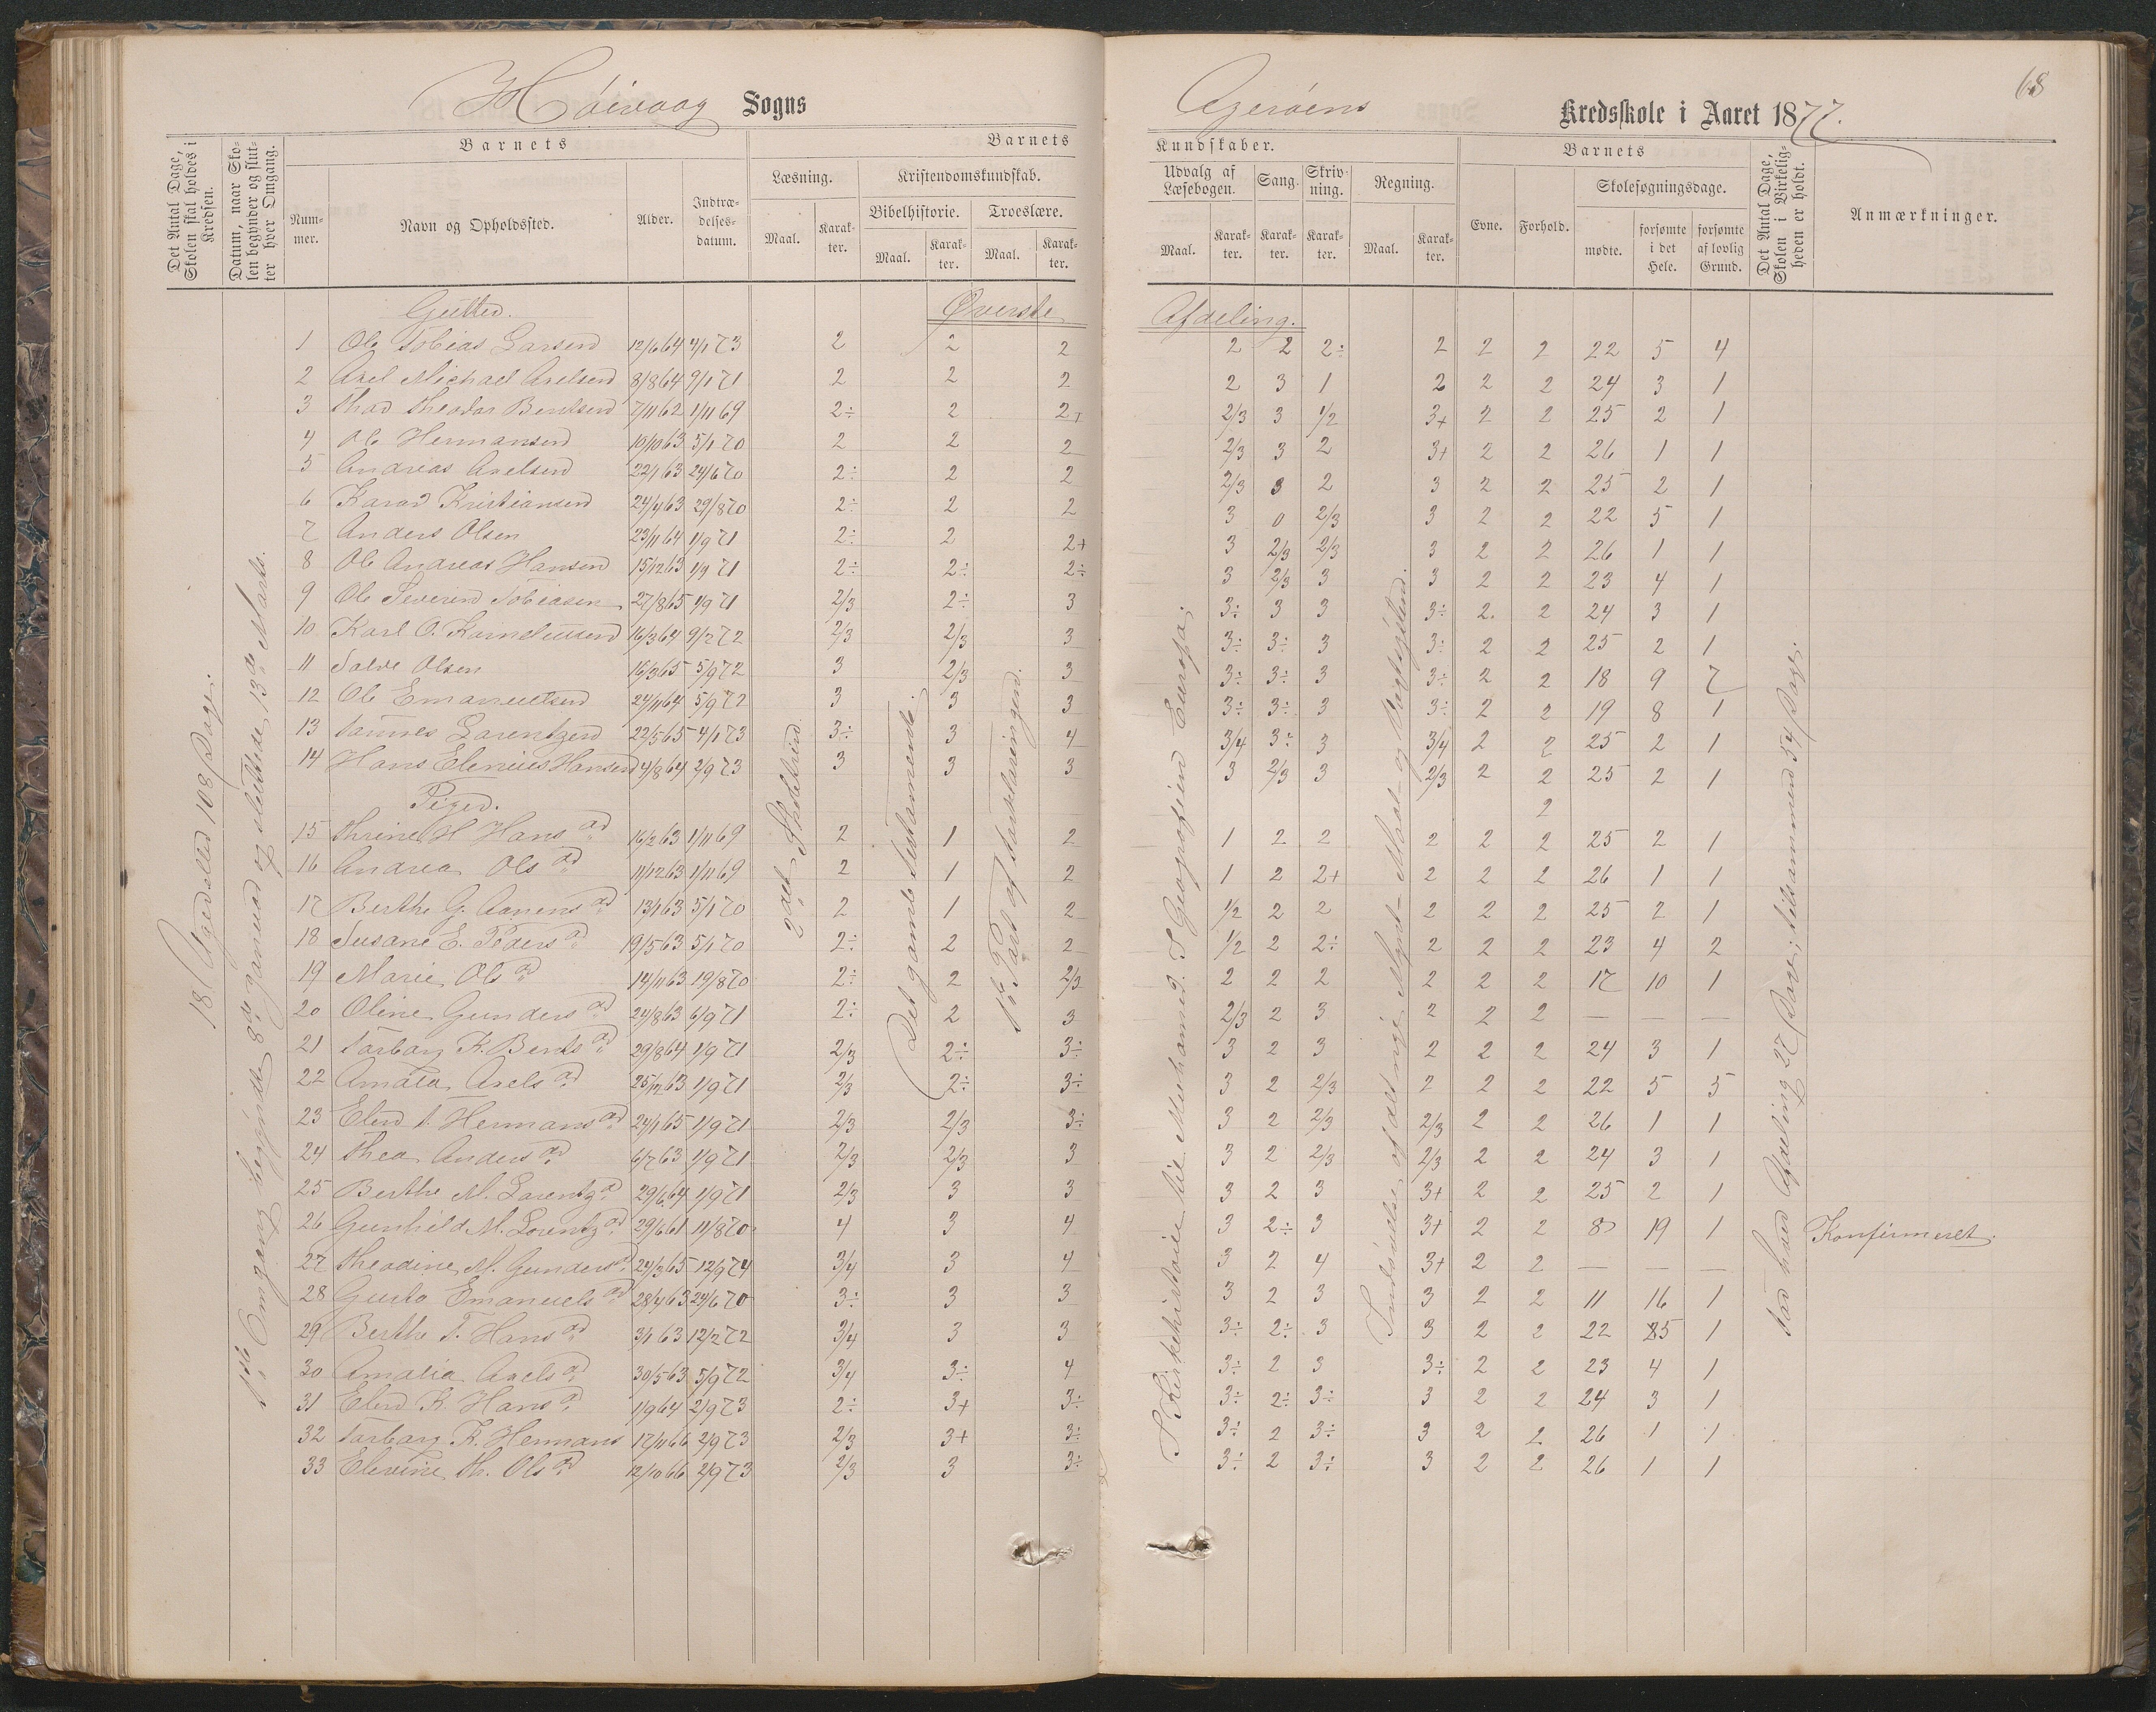 68
Høivaag Sogns
Agerøens Kredsskole i Aaret 1877.
Det Antal Dage, Skolen skal holdes i Kredsen.
Datum, naar Skolen begynder og slutter hver Omgang.
Barnets
Nummer.
Navn og Opholdssted.
Alder.
Indtrædelsesdatum.
Barnets Kundskaber.
Læsning.
Maal.
Karakter.
Kristendomskundskab.
Bibelhistorie.
Maal.
Karakter.
Troeslære.
Maal.
Karakter.
Udvalg af Læsebogen.
Maal.
Karakter.
Sang.
Karakter.
Skrivning.
Karakter.
Regning.
Maal.
Karakter.
Barnets
Evne.
Forhold.
Skolesøgningsdage.
mødte.
forsømte i det Hele.
forsømte af lovlig Grund.
Det Antal Dage, Skolen i Virkeligheden er holdt.
Anmærkninger.
Gutter.
Øverste Afdeling.
1 Ole Tobias Larsen 12/6 64 4/1 73 2 2 2 2 2 2÷ 2 2 2 22 5 4
2 Axel Michael Axelsen 8/8 64 9/1 71 2 2 2 2 3 1 2 2 2 24 3 1
3 Thor Theodor Bentsen 7/11 62 1/11 69 2÷ 2 2+ 2/3 3 1/2 3+ 2 2 25 2 1
4 Ole Hermansen 10/10 63 5/1 70 2 2 2 2/3 3 2 3+ 2 2 26 1 1
5 Andreas Axelsen 22/1 63 24/6 70 2÷ 2 2 2/3 3 2 3 2 2 25 2 1
6 Kristiansen 24/4 63 29/8 70 2÷ 2 2 3 0 2/3 3 2 2 22 5 1
7 Anders Olsen 23/11 64 1/9 71 2÷ 2 2+ 3 2/3 2/3 3 2 2 26 1 1
8 Ole Andreas Hansen 15/12 63 1/9 71 2÷ 2÷ 2÷ 3 2/3 3 3 2 2 23 4 1
9 Ole Severin Tobiasen 27/8 65 1/9 71 2/3 2÷ 3 3÷ 3 3 3÷ 2. 2 24 3 1
10 Karl O. Korneliussen 16/3 64 9/2 72 2/3 2/3 3 3÷ 3÷ 3 3÷ 2 2 25 2 1
11 Salve Olsen 16/3 65 5/9 72 3 2/3 3 3÷ 3÷ 3 3÷ 2 2 18 9 7
12 Ole Emanuelsen 24/11 64 5/9 72 3 3 3 3÷ 3÷ 3 3÷ 2 2 19 8 1
13 Tønnes Larentzen 22/5 65 4/1 73 3÷ 3 4 3/4 3÷ 3 3/4 2 2 25 2 1
14 Hans Elenius Hansen 4/8 64 2/9 73 3 3 3 3 2/3 3 2/3 2 2 25 2 1
Piger.
2
15 Thrine H. Hans d 16/2 63 1/11 69 2 1 2 1 2 2 2 2 2 25 2 1
16 Andrea Ols d 11/12 63 1/11 69 2 1 2 1 2 2+ 2 2 2 26 1 1
17 Berthe G. Aanens d 13/1 63 5/1 70 2 1 2 1/2 2 2 2 2 2 25 2 1
18 Susane E. Peders d 19/5 63 5/1 70 2÷ 2 2 1/2 2 2÷ 2 2 2 23 4 2
19 Marie Ols d 14/11 63 19/8 70 2÷ 2 2/3 2 2 2 2 2 2 17 10 1
20 Oline Gunders d 24/8 63 6/9 71 2÷ 2 3 2/3 2 3 2 2 2 — — —
21 Torborg K. Bents d 29/8 64 1/9 71 2/3 2÷ 3÷ 3 2 3 2 2 2 24 3 1
22 Amalia Axels d 25/12 63 1/9 71 2/3 2÷ 3÷ 3 2 2/3 2 2 2 22 5 5
23 Elen T. Hermans d 24/1 65 1/9 71 2/3 2/3 3÷ 3 2 2/3 2/3 2 2 26 1 1
24 Thea Anders d 6/7 63 1/9 71 2/3 2/3 3 3 2 2/3 2/3 2 2 24 3 1
25 Berthe M. Larentz d 29/6 64 1/9 71 2/3 3 3 3 2 3 3+ 2 2 25 2 1
26 Gunhild M. Lorentz d 29/6 61 11/8 70 4 3 4 3 2÷ 3 3+ 2 2 8 19 1 Konfirmeret.
27 Theodine M. Gunders d 24/3 65 12/9 74 3/4 3 4 3 2 4 3+ 2 2 — — —
28 Gusta Emanuels d 28/4 63 24/6 70 3÷ 3 3 3 2 3 3 2 2 11 16 1
29 Berthe T. Hans d 3/1 63 12/2 72 3/4 3 3 3÷ 2÷ 3 3 2 2 22 5 1
30 Amalia Axels d 30/5 63 5/9 72 3/4 3÷ 4 3÷ 2 3 3÷ 2 2 23 4 1
31 Elen K. Hans d 1/9 64 2/9 73 2÷ 3+ 3÷ 3÷ 2÷ 3÷ 3 2 2 24 3 1
32 Torborg K. Hermans 17/11 66 2/9 73 2/3 3+ 3÷ 3÷ 2 3÷ 3 2 2 26 1 1
33 Elevine Th. Ols d 12/10 66 2/9 73 2/3 3 3÷ 3÷ 2 3÷ 3 2 2 26 1 1
18 Uger eller 108 Dage.
1ste Omgang begyndte 8de Januar og sluttede 13de Marts.
2det Skoletrin.
Det gamle Testamente.
1ste Part af Forklaringen.
I Kirkehistorie til Muhamed. I Geografien Europa.
Indøvelse af det nye Mynt- Maal- og Vægtsystem.
For hver Afdeling 27 Dage, tilsammen 54 Dage.